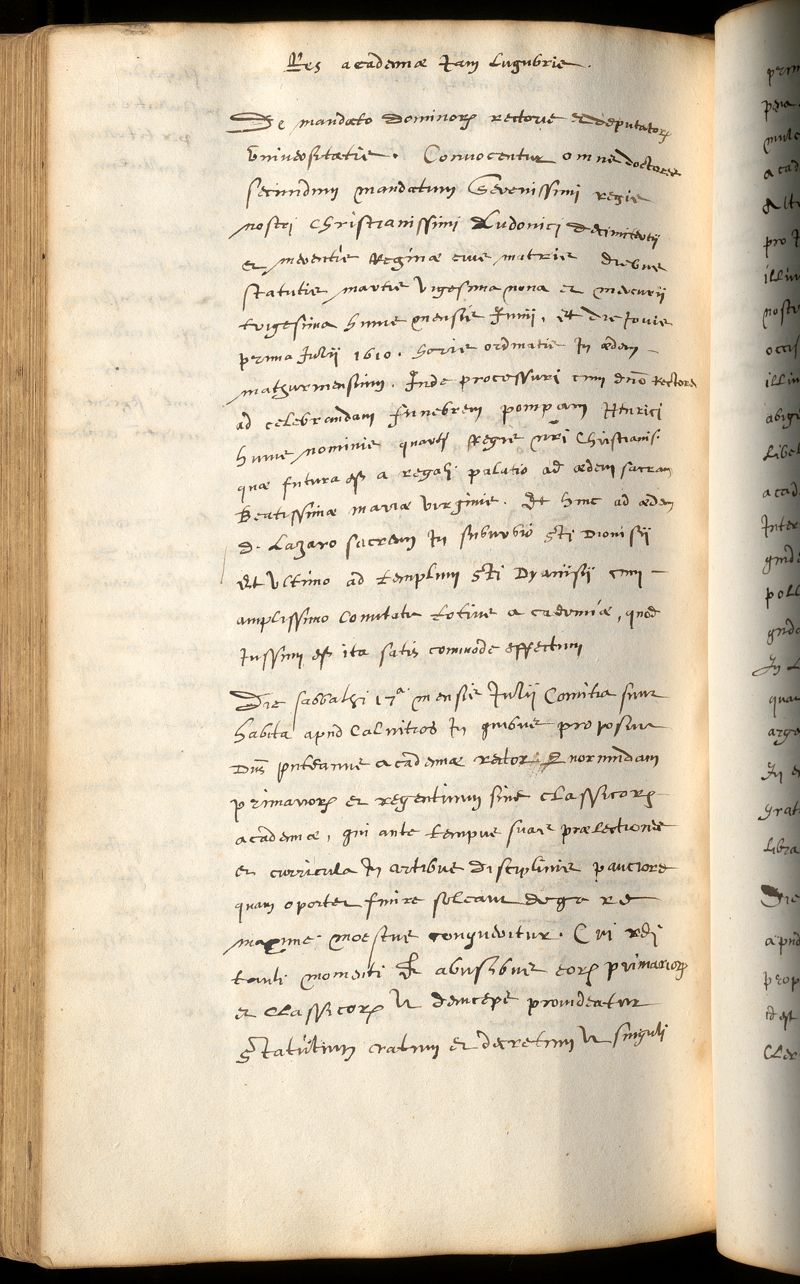 Res academiæ Jam Lugubris.
De mandato dominorum rectoris et deputatorum
Universitatis. Convocentur omnes doctores
secundum mandatum Serenissimi regis
nostri Christianissimi Ludovici decimitertii
et merentis Reginæ eius matris diebus
statutis martis Vigesima nona et mercurii
trigesima huius mensis Junii, et die Jovis
prima Julii 1610. horis ordinatis in ædem
mathurinensium. Inde processuri cum dno Rectore
ad celebrandam funebrem pompam Henrici
huius nominis quarti Regis nri Christianiss.
quæ futura est a regali palatio ad ædem sacram
Beatissimæ mariæ virginis. Et hinc ad ædem
d. Lazaro sacram in suburbio Sti Dionisii
et ultimo ad templum Sti Dyonisii cum
amplissimo Comitatu totius academiæ, quod
Jussum est ita satis commode effectum
Die sabbathi 17a mensis Julii Comitia sunt
habita apud Calnitros In quibus proposuit
Dns puteanus academiæ rector nonnundam
primarior et regentium sive classicor
academiæ, qui ante tempus suas prælectiones
et curricula In artibus disciplinis pauciore
quam oportet finire soleant de ga re
maxime moestus conqueritur. Cui rei
tanti momenti et abusibus eor primarior
et classicor ut deinceps provideatur
Statutum ratum et decretum ut singuli
prim
pera
mulc
acad
Alt
pro J
illiu
nostr
occis
illiu
abigi
Libel
acad
Inter
poll
In L
quar
arge
In e
grat
libra
Die
apud
prop
id est
Cler